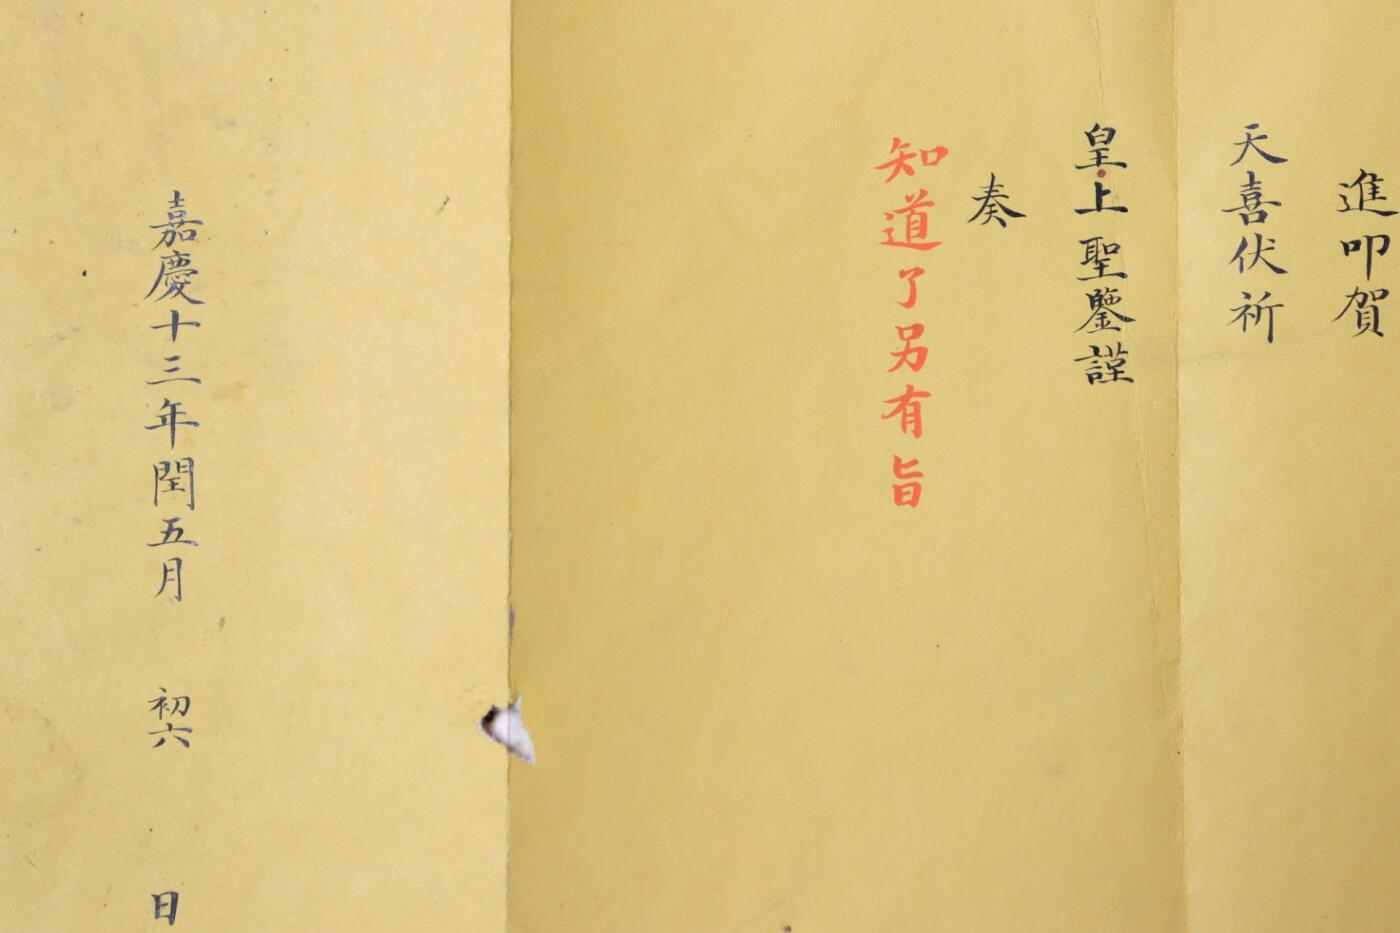 進叩賀
天喜伏祈
皇上聖鑒謹
奏
知道了另有旨
嘉慶十三年閏五月初六日